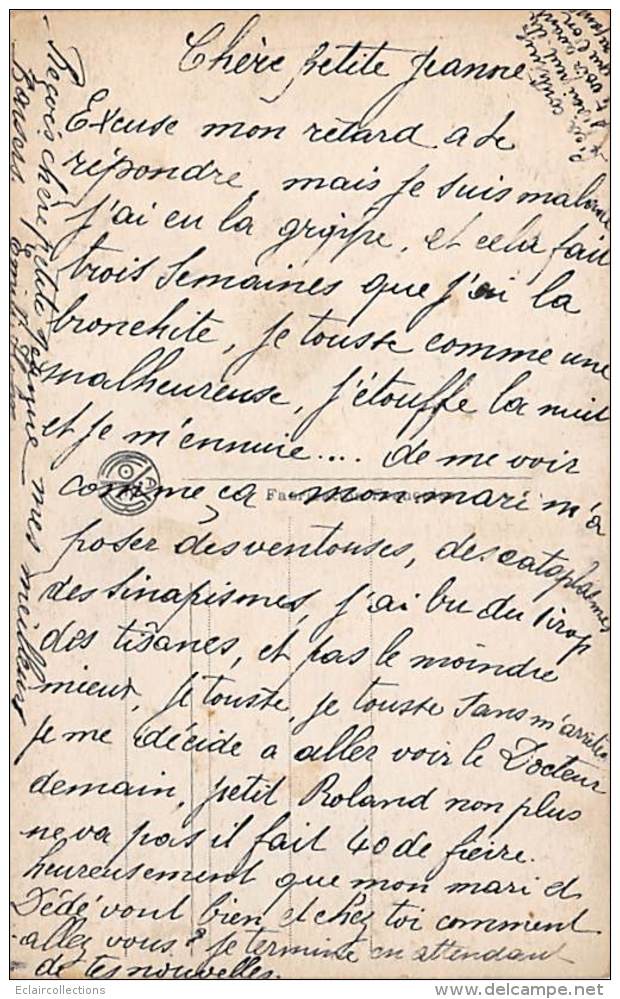 Chère petite Jeanne
Excuse mon retard a te
répondre mais je suis malade
j'ai eu la grippe, et cela fait
trois semaines que j'ai la
bronchite, je tousse comme une
malheureuse, j'étouffe la nuit
et je m'ennuie.... de me voir
comme ça mon mari m'a
poser des ventouses, des cataplasmes
des sinapismes, j'ai bu du sirop
des tisanes, et pas le moindre
mieux, je tousse, je tousse sans m'arrêter
je me décide a aller voir le Docteur
demain, petit Roland non plus
ne va pas il fait 40 de fièvre.
heureusement que mon mari et
Dédé vont bien et chez toi comment
allez vous? je termine en attendant
de tes nouvelles.
Reçois chère petite Jeanne mes meilleurs
Baisers
Eclaircollections
delcampe.net